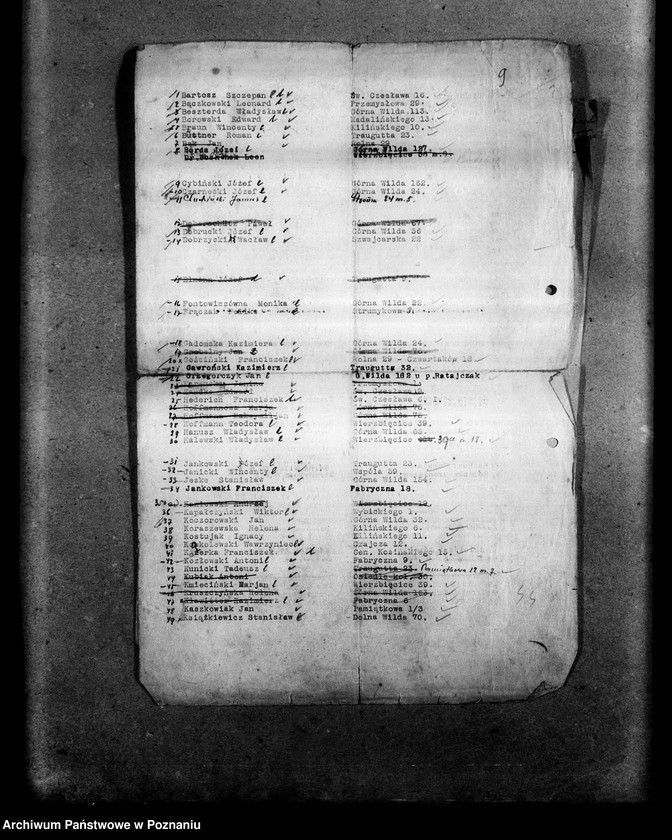 9
1 Bartosz Szczepan Św. Czesława 16.
2 Bączkowski Leonard Przemysłowa 29.
3 Beszterda Władysław Górna Wilda 113.
4 Borowski Edward Madalińskiego 13
5 Braun Wincenty Kilińskiego 10.
6 Büttner Roman Traugutta 23.
7 Bąk Jan Rolna 29
8 Borda Józef Górna Wilda 127.
Leon Wierzbięcice
9 Cybiński Józef Górna Wilda 162.
10 Czarnecki Józef Górna Wilda 24.
11 Janusz 24 m. 5.
12 Paweł Górna Wilda
13 Dobrucki Józef Górna Wilda 36
14 Dobrzycki Wacław Szwajcarska 22
15 Józef Traugutta 9.
16 Fontowiczówna Monika Górna Wilda 22.
17 Frączak Strumykowa
18 Gadomska Kazimiera Górna Wilda 24.
19 Jan Górna Wilda
20 Gościński Franciszek Rolna 29 - Czwartaków 12
21 Gawroński Kazimierz Traugutta 32.
22 Grzegorczyk Jan G. Wilda 162 u p. Ratajczak
25 Hederich Franciszek Św. Czesława
26 Hoffmann Górna Wilda
27 Hoffmann
28 Hoffmann Teodora Wierzbięcice 39.
29 Hanusz Władysław Górna Wilda 53.
30 Halewski Władysław Wierzbięcice 39a m. 18.
31 Jankowski Józef Traugutta 23.
32 Janicki Wincenty Wspólna 39.
33 Jesko Stanisław Górna Wilda 154.
34 Jankowski Franciszek Fabryczna 18.
Andrzej Wierzbięcice
36 Kapałczyński Wiktor Wybickiego 1.
37 Koszorowski Jan Górna Wilda 32.
38 Koraszewska Helena Kilińskiego 6.
39 Kostujak Ignacy Kilińskiego 11.
40 Wawrzyniec Czajcza 12.
41 Franciszek Gen. Kosińskiego 15.
42 Kozłowski Antoni Fabryczna 9.
43 Kunicki Tadeusz Traugutta 23 Pamiątkowa 12 m. 7.
44 Kubiak Antoni Osiedle kol. 30.
45 Kmieciński Marjan Wierzbięcice 39.
46 Kruszczyńska Helena Górna Wilda 103.
47 Kazimierz Fabryczna 8
48 Kaszkowiak Jan Pamiątkowa 1/3
49 Książkiewicz Stanisław Dolna Wilda 70.
Archiwum Państwowe w Poznaniu